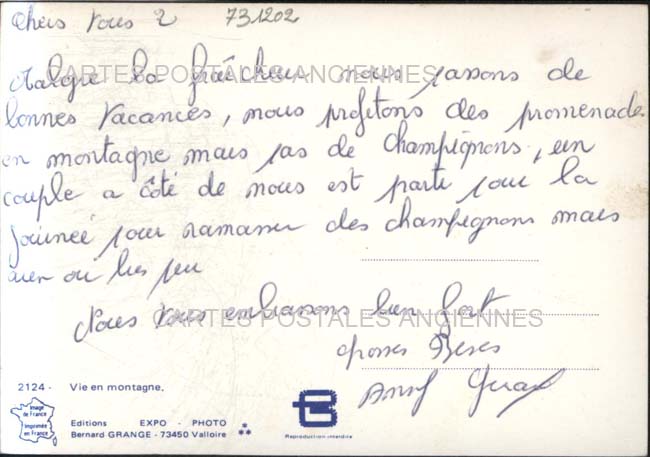 Chers vous 2 731202
Malgré la fraîcheur nous passons de
CARTES POSTALES ANCIENNES
bonnes vacances, nous profitons des promenades
en montagne mais pas de champignons, un
couple a côté de nous est parti pour la
journée pour ramasser des champignons mais
rien ou très peu
Nous vous embrassons bien fort
CARTES POSTALES ANCIENNES
grosses Bises
2124 - Vie en montagne.
Image de France
Imprimée en France
Editions EXPO - PHOTO
Bernard GRANGE - 73450 Valloire
Reproduction interdite